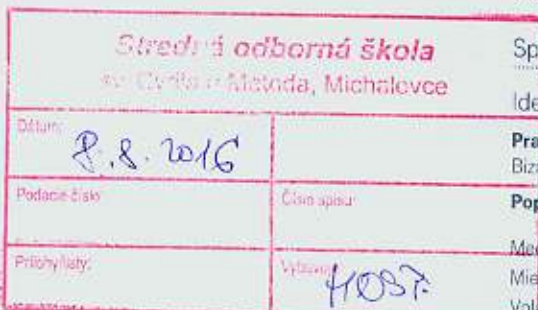 Stredná odborná škola
sv. Cyrila a Metoda, Michalovce
Dátum:
8.8.2016
Podacie číslo:
Číslo spisu:
Prílohy/listy:
Vybavuje:
Sp
Ide
Pra
Biz
Pop
Med
Mie